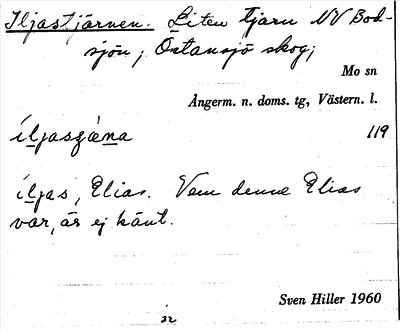 Iljastjärnen. Liten tjärn NV Bod-
sjön; Östansjö skog;
Mo sn
Ångerm. n. doms. tg, Västern. l.
119
íljas, Elias. Vem denne Elias
var, är ej känt.
Sven Hiller 1960